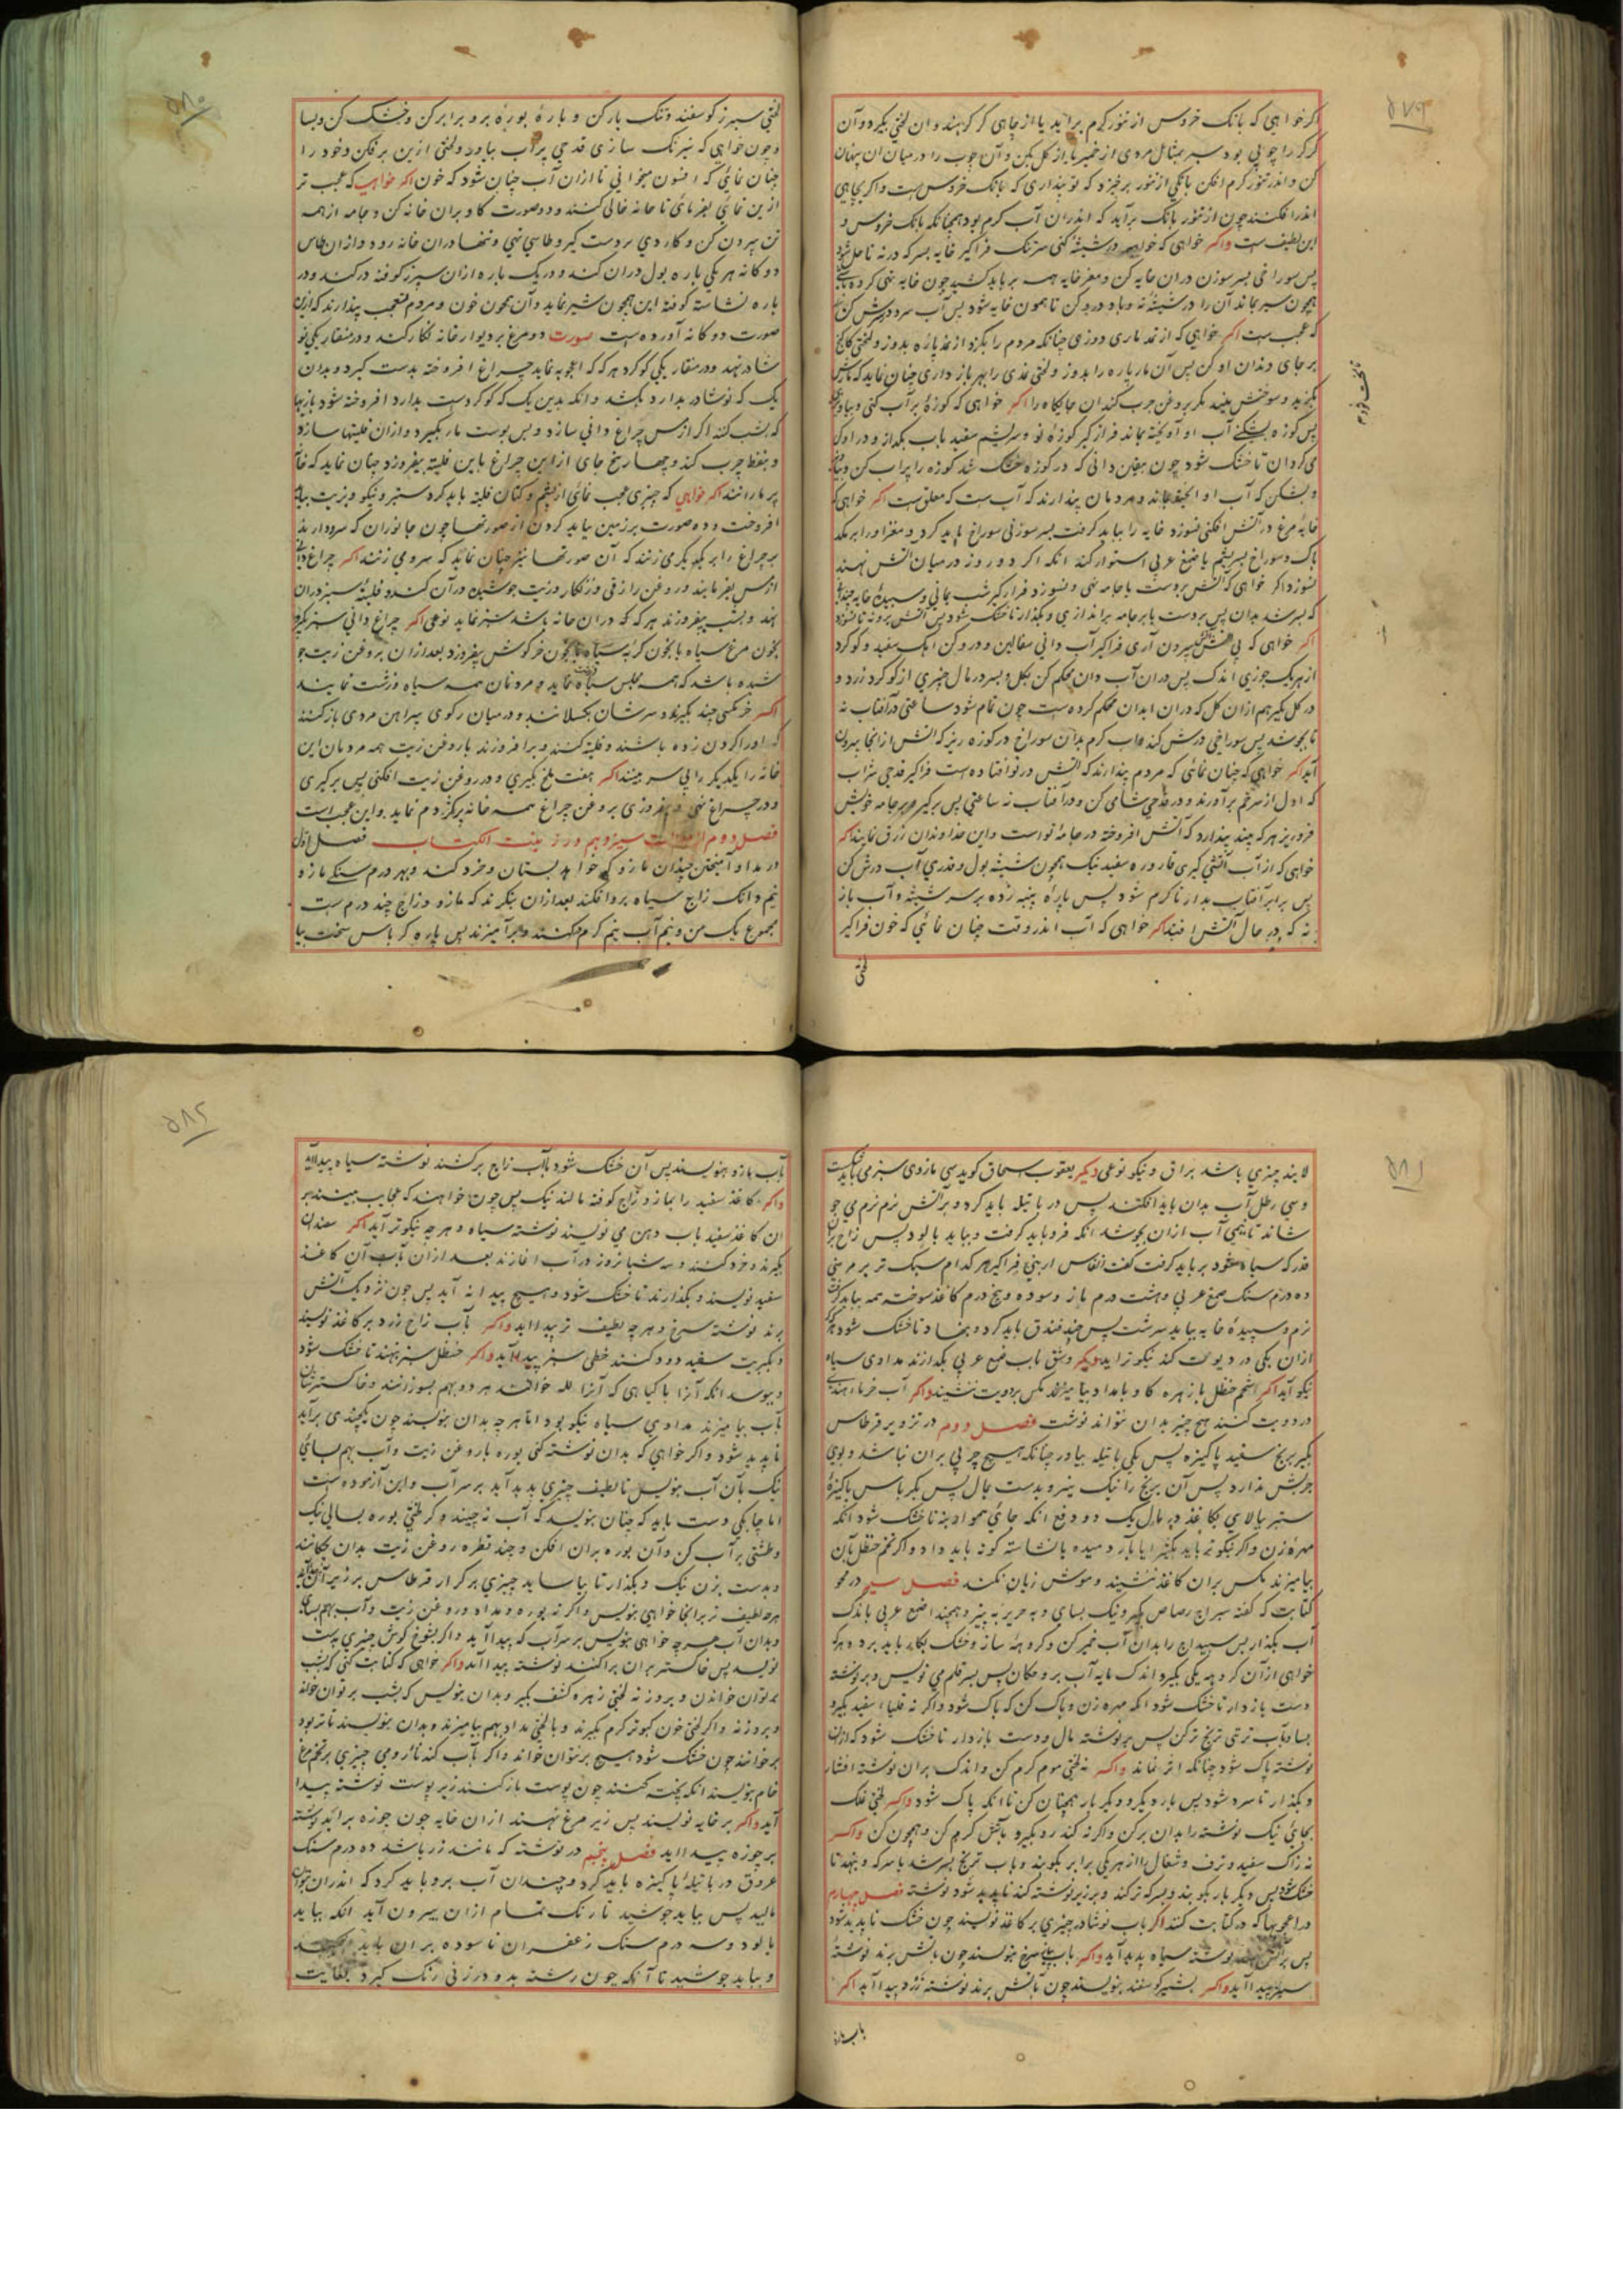 اکر خواهی که بانک خروس از تنور کرم براید یا از چاهی کر کر بهند و ان لختی بکیرد و آن
کن و اندر تنور کرم افکن بانکی از تنور برخیزد که تو پنداری که بانک خروس است و اکر بچاهی
اندر افکنند چون از تنور بانک برآید که اندران آب کرم بود همچنانکه بانک خروس و
این لطیف است واکر خواهی که در شیشه کنی سر تنک فراکیر خایه بسرکه در نه تا حل شود
پس سوراخی بسر سوزن دران خایه کن و مغز خایه همه بر باید کشید چون خایه تهی کرده
همچون سیر بماند آن را در شیشه نه و باد در و کن تا همون خایه شود پس آب سرد درش کن
که عجب است اکر خواهی که از نمد ماری دوزی چنانکه مردم را بکزد از نمد پاره بدوز و لختی
بر جای دندان او کن پس آن مار پاره را بدوز و لختی نمدی را بهر باز داری چنان نماید که
بکزید و سوختش بیند مکر بروغن چرب کند ان جایکاه را اکر خواهی که کوزۀ پر آب کنی و بیاویزی
پس کوزه بشکنی آب او آویخته بماند فراز کیر کوزه نو و سریشم سفید باب بکداز و در او کن
می کردان تا خشک شود چون یقین دانی که در کوزه خشک شد کوزه را پر اب کن و
و بشکن که آب او آویخته بماند و مردمان پندارند که آب است که معلق است اکر خواهی که
خایه مرغ در آتش افکنی نسوزد خایه را بباید کرفت بسر سوزنی سوراخ باید کرد و مغز او را بر مکد
پاک و سوراخ بسریشم یا صمغ عربی استوار کند انکه اکر دو روز در میان آتش نهند
نسوزد اکر خواهی که آتش بر دست یا جامه نهی و نسوزد فراز کیر شب یمانی و سپیدۀ خایه چندانی
که بسر شد بدان پس بر دست یا بر جامه براندازی و بکذار تا خشک شود پس آتش برو نه تا نسوزد
اکر خواهی که بی آتش آتش بیرون آری فراکیر آب دانی سفالین و درو کن آهک سفید و کوکرد
از هر یک جزی اندک پس دران آب دان محکم کن بکل و بسر درمال چیزی از کوکرد زرد و
در کل بکیر هم ازان کل که دران ابدان محکم کرده است چون تمام شود ساعتی در آفتاب نه
تا بجوشد پس سوراخی درش کند و اب کرم بدان سوراخ در کوزه ریز که اتش از انجا بیرون
آید اکر خواهی که چنان نمائی که مردم پندارند که آتش در تو افتاده است فراکیر قدحی شراب
که اول از سر خم برآورند و در قدحی شامی کن و در آفتاب نه ساعتی پس برکیر و بر جامه خویش
فرو ریز هر که بیند پندارد که آتش افروخته در جامۀ تو است و این خداوندان زرق نمایند اکر
خواهی که از آب آتش کیری قاروره سفید نیک همچون شیشه بول و قدری آب درش کن
پس برابر آفتاب بدار تا کرم شود پس پاره پنبه زده بر سر شیشه و آب باز
نه که در حال آتش افتد اکر خواهی که آب اندر وقت چنان نمائی که خون فراکیر
لختی
لختی سپرز کوسفند و تنک باز کن و پارۀ بورۀ برو برابر کن و خشک کن و بسا
و چون خواهی که نیرنک سازی قدحی پر آب بیاور و لختی ازین بر فکن و خود را
چنان نمائی که افسون میخوانی تا ازان آب چنان شود که خون اکر خواهی که عجب تر
ازین نمائی بفرمائی تا خانه خالی کنند و دو صورت کاو بران خانه کن و جامه از همه
تن بیرون کن و کاردی بر دست کیر و طاسی تهی و تنها دران خانه رو و ازان طاس
دوکانه هر یکی پاره بول دران کند و در یک پاره ازان سپرز کوفته در کند و در
پاره نشاسته کوفته این همچون شیر نماید و آن همچون خون و مردم متعجب پندارند که این
صورت دوکانه آورده است صورت دو مرغ بر دیوار خانه نکار کند و در منقار یکی نو
شادر نهد و در منقار یکی کوکرد هر که که اعجوبه نماید چراغ افروخته بدست کیرد و بدان
یک که نوشادر بدارد بکشد و انکه بدین یک که کوکرد ست بدارد افروخته شود باز
که بشب کند اکر از مس چراغ دانی سازد و پس پوست مار بکیرد و ازان فلیتها سازد
و بنفط چرب کند و چهار سخ جای ازین چراغ باین فلیته بیفروزد چنان نماید که
پر مارانند اکر خواهی که چیزی عجب نمائی از پشم و کتان فلیته باید کرد سبز و نیکو و بزیت بباید
افروخت و ده صورت بر زمین بباید کردن از صورتها چون جانوران که سر دارند
بر چراغ را بر یکدیکر می زنند که آن صورتها نیز چنان نماید که سر و می زنند اکر چراغ دانی
از مس بفرمایند و روغن رازقی و زنکار و زیت جوشیده در آن کنند و فلیتۀ سبز دران
نهد و بشب بیفروزند هر که که دران خانه باشد سبز نماید نوعی اکر چراغ دانی سبز بکیرد
بخون مرغ سیاه یا بخون کربه سیاه یا بخون خرکوش بیفروزد بعد ازان بروغن زیت جو
شیده باشد که همه مجلس سیاه نماید و مردمان همه سیاه و زشت نمایند
اکر خر مکسی چند بکیرند و سرشان بکسلانند و در میان رکوی پیراهن مردی باز کنند
که او را کردن زده باشند و فلیته کنند و بر افروزند با روغن زیت همه مردمان این
خانه را یکدیکر را بی سر بینند اکر هفت ملخ بکیری و در روغن زیت افکنی پس برکیری
و در چراغ نهی و بیفروزی بروغن چراغ همه خانه پر کژدم نماید و این عجب است
فصل دوم از مقالت سیزدهم در زینت الکتاب فصل اول
در مداد آمیختن چندان مازو که خواهد بستان و خرد کند و بهر درم سنکی مازو
نیم دانک زاج سیاه برو افکند بعد ازان بنکرند که مازو و زاج چند درم ست
مجموع یک من و نیم آب نیم کرم کنند و برآمیزند پس پاره کرباس سخت بیا
لایند چیزی باشد براق و نیکو نوعی دیکر یعقوب اسحاق کوید سی مازوی سبز می باید شکست
و سی رطل آب بدان باید افکند پس در پاتیله باید کرد و بر آتش نرم نرم می جو
شاند تا نیمی آب ازان بجوشد انکه فرو باید کرفت و بباید پالود پس زاج بران
قدر که سیاه شود بر باید کرفت کفت انقاس ارمنی فراکیر هر کدام سبک تر بر هر منی
ده درم سنک صمغ عربی و هشت درم مازو سوده و پنج درم کاغذ سوخته همه بباید کرفت
نرم و سپیدۀ خایه بباید سرشت پس چند فندق باید کرد و نهاد تا خشک شود هر که
ازان یکی در دویت کند نیکو تر اید دیکر و بنق باب صمغ عربی بکدازند مدادی سیاه
نیکو آید اکر شحم حنظل با زهره کاو با مداد بیامیزند مکس بر دویت ننشیند واکر آب خرما هندی
در دویت کنند هیچ چیز بدان نتواند نوشت فصل دوم در تزویر قرطاس
بکیر برنج سفید پاکیزه پس یکی پاتیله بیاور چنانکه هیچ چربی بران نباشد و بوی
چربش ندارد پس آن برنج را نیک بپز و بدست بمال پس بکرباس پاکیزۀ
ستبر بپالای بکاغذ در مال یک دو دفع انکه جائی هموار بنه تا خشک شود انکه
مهره زن و اکر نیکو تر باید بکثیرا یا بآرد میده یا نشاسته کونه باید داد و اکر شحم حنظل بآن
بیامیزند مکس بران کاغذ ننشیند و موش زیان نکند فصل سیم در محو
کتابت که کفته سیراج رصاص بکیر و نیک بسای و به حریر به بیز و همچند اضمغ عربی باندک
آب بکداز پس سپیداج را بدان آب خمیر کن و کروهۀ ساز و خشک بکار باید برد هر که
خواهی ازآن کروهه یکی بکیر و اندک مایه آب برو چکان پس بسر قلم می نویس و بر نوشته
دست باز دار تا خشک شود انکه مهره زن و پاک کن که پاک شود واکر نه قلیا سفید بکیر و
بسا و بآب ترشی ترنج تر کن پس بر نوشته مال و دست باز دار تا خشک شود که ازان
نوشته پاک شود چنانکه اثر نماند واکر نه لختی موم کرم کن و اندک بران نوشته افشار
و بکذار تا سرد شود پس بار دیکر و دیکر بار همچنان کن تا انکه پاک شود واکر لختی علک
بخائی نیک نوشته را بدان برکن واکر نه کندر و بکیر و باتش کرم کن و همچون کن واکر
نه زاک سفید و ترف و شغال از هر یکی برابر بکوبند و باب ترنج بسر شد یا سرکه و بنهد تا
خشک شود پس دیکر بار بکوبند و بسرکه تر کند و بر زیر نوشته کند ناپدید شود نوشته فصل چهارم
در اعجوبها که در کتابت کنند اکر باب نوشادر چیزی بر کاغذ نویسند چون خشک ناپدید شود
پس بر آتش نوشته سیاه پدید آید واکر باب پیاز سرخ بنویسند چون باتش برند نوشته
سبز پیدا آید واکر بشیر کوسفند بنویسند چون باتش برند نوشته زرد پیدا آید اکر
باب مازو
باب مازو بنویسند پس آن خشک شود باب زاج برکشند نوشته سیاه پیدا آید
واکر کاغذ سفید را بمازو و زاج کوفته مالند نیک پس چون خواهند که عجایب بینند بر
ان کاغذ سفید باب دهن می نویسند نوشته سیاه و هرچه نیکوتر آید اکر
بکیرند و خرد کنند و سه شبانروز در آب اغارند بعد ازان بآب آن کاغذ
سفید نویسند و بکذارند تا خشک شود و هیچ پیدا نه آید پس چون نزدیک آتش
برند نوشته سرخ و هرچه لطیف تر پیدا اید واکر بآب زاج زرد بر کاغذ نویسند
و بکبریت سفید دود کنند خطی سبز پیدا آید واکر حنظل سبز بنهند تا خشک شود
و بپوسد انکه آنرا با کیاهی که آنرا لله خوانند هر دو بهم بسوزانند و خاکسترشان
بآب بیامیزند مدادی سیاه نیکو بود اما هرچه بدان بنویسند چون یکچندی برآید
ناپدید شود و اکر خواهی که بدان نوشته کنی بوره با روغن زیت و آب بهم بسائی
نیک بآن آب بنویس تا لطیف چیزی پدید آید بر سر آب و این آزموده است
اما چابکی دست باید که چنان بنویسد که آب نه جنبد و کر لختی بوره بسائی نیک
و طشتی پر آب کن و آن بوره بران افکن و چند قطره روغن زیت بدان چکانند
و بدست بزن نیک و بکذار تا بیاساید چیزی بر کردار قرطاس بر زبر آن آید
هرچه لطیف تر برانجا خواهی بنویس واکر نه بوره و مداد و روغن زیت و آب بهم بسای
و بدان آب هرچه خواهی بنویس بر سر آب که پیدا آید واکر بنوغ کوش چیزی بر دست
نویسد پس خاکستر بران پراکنند نوشته پیدا آید واکر خواهی که کتابت کنی که بشب
بتوان خواندن و بروز نه لختی زهره کشف بکیر و بدان بنویس که بشب بر توان خواند
و بروز نه واکر لختی خون کبوتر کرم بکیرند و با لختی مداد بهم بیامیزند و بدان بنویسند تا تر بود
بر خوانند چون خشک شود هیچ بر نتوان خواند واکر بآب کندنا رومی چیزی بر تخم مرغ
خام بنویسند انکه پخته کنند چون پوست باز کنند زیر پوست نوشته پیدا
آید واکر بر خایه نویسند پس زیر مرغ نهند ازان خایه چون جوزه براید نوشته
بر جوزه پیدا اید فصل پنجم در نوشته که مانند زر باشد ده درم سنک
عروق در پاتیلۀ پاکیزه باید کرد و چندان آب برو باید کرد که اندران بتوان
مالید پس بباید جوشید تا رنک تمام ازان بیرون آید انکه بباید
پالود و سه درم سنک زعفران ناسوده بران باید
و بباید جوشید تا آنکه چون رشته بدو در زنی رنک کیرد بغایت